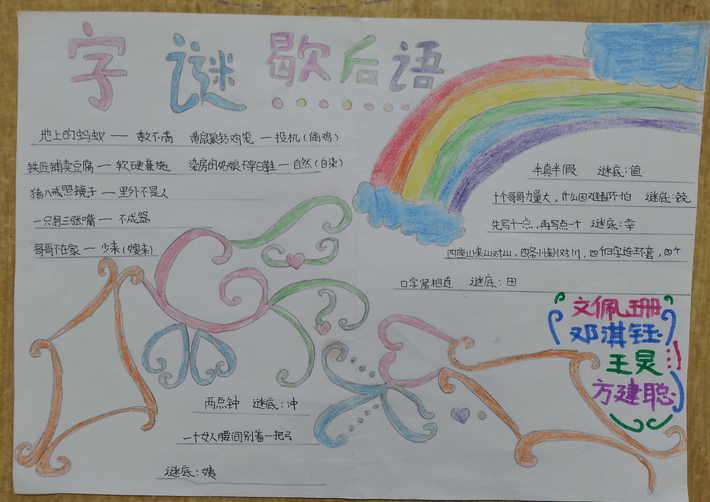 字谜歇后语
地上的蚂蚁 — 数不清
黄鼠狼钻鸡笼 — 投机(偷鸡)
铁匠铺卖豆腐 — 软硬兼施
染房的姑娘不穿白鞋 — 自然(自染)
猪八戒照镜子 — 里外不是人
一只 三张嘴 — 不成器
哥哥不在家 — 少来(嫂来)
半真半假 谜底:值
十个哥哥力量大,什么困难都不怕 谜底:克
先写十点,再写点十 谜底:幸
四座山来山对山,四条小 对川,四个日字连环套,四个
口字紧相连 谜底:田
两点钟 谜底:冲
一个女人腰间别着一把弓
谜底:姨
文佩珊
邓淇钰
王昊
方建聪